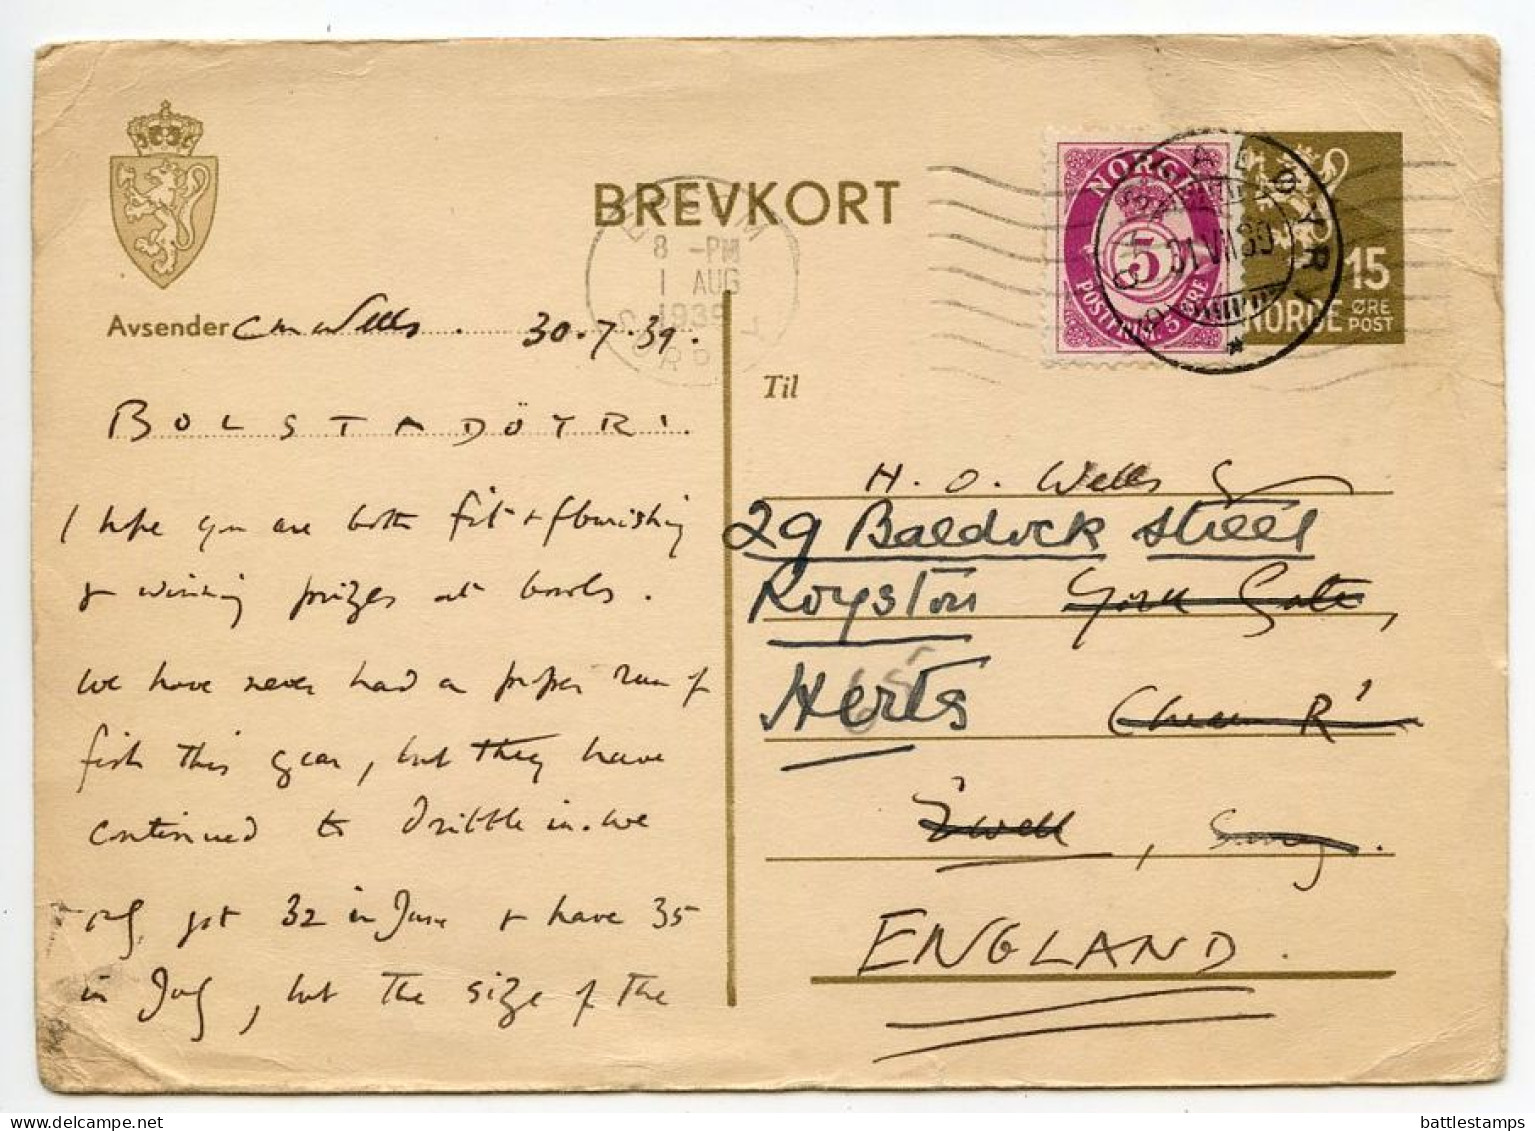 BREVKORT
EPSOM
8 - PM
1 AUG
1939
NORGE
5
POSTFRIM. 5 ØRE
BOLSTADØYRI
31 VII 39
15
ØRE
NORGE POST
Avsender C M Wells. 30.7.39.
BOLSTADÖYRI.
I hope you are both fit & flourishing
& winning prizes at bowls.
We have never had a proper run of
fish this year, but they have
continued to dribble in. We
only got 32 in June & have 35
in July, but the size of the
Til
H. O. Wells
29 Baldock Street
Royston York Gate,
Herts
Ewell, Surrey.
ENGLAND.
battlestamps